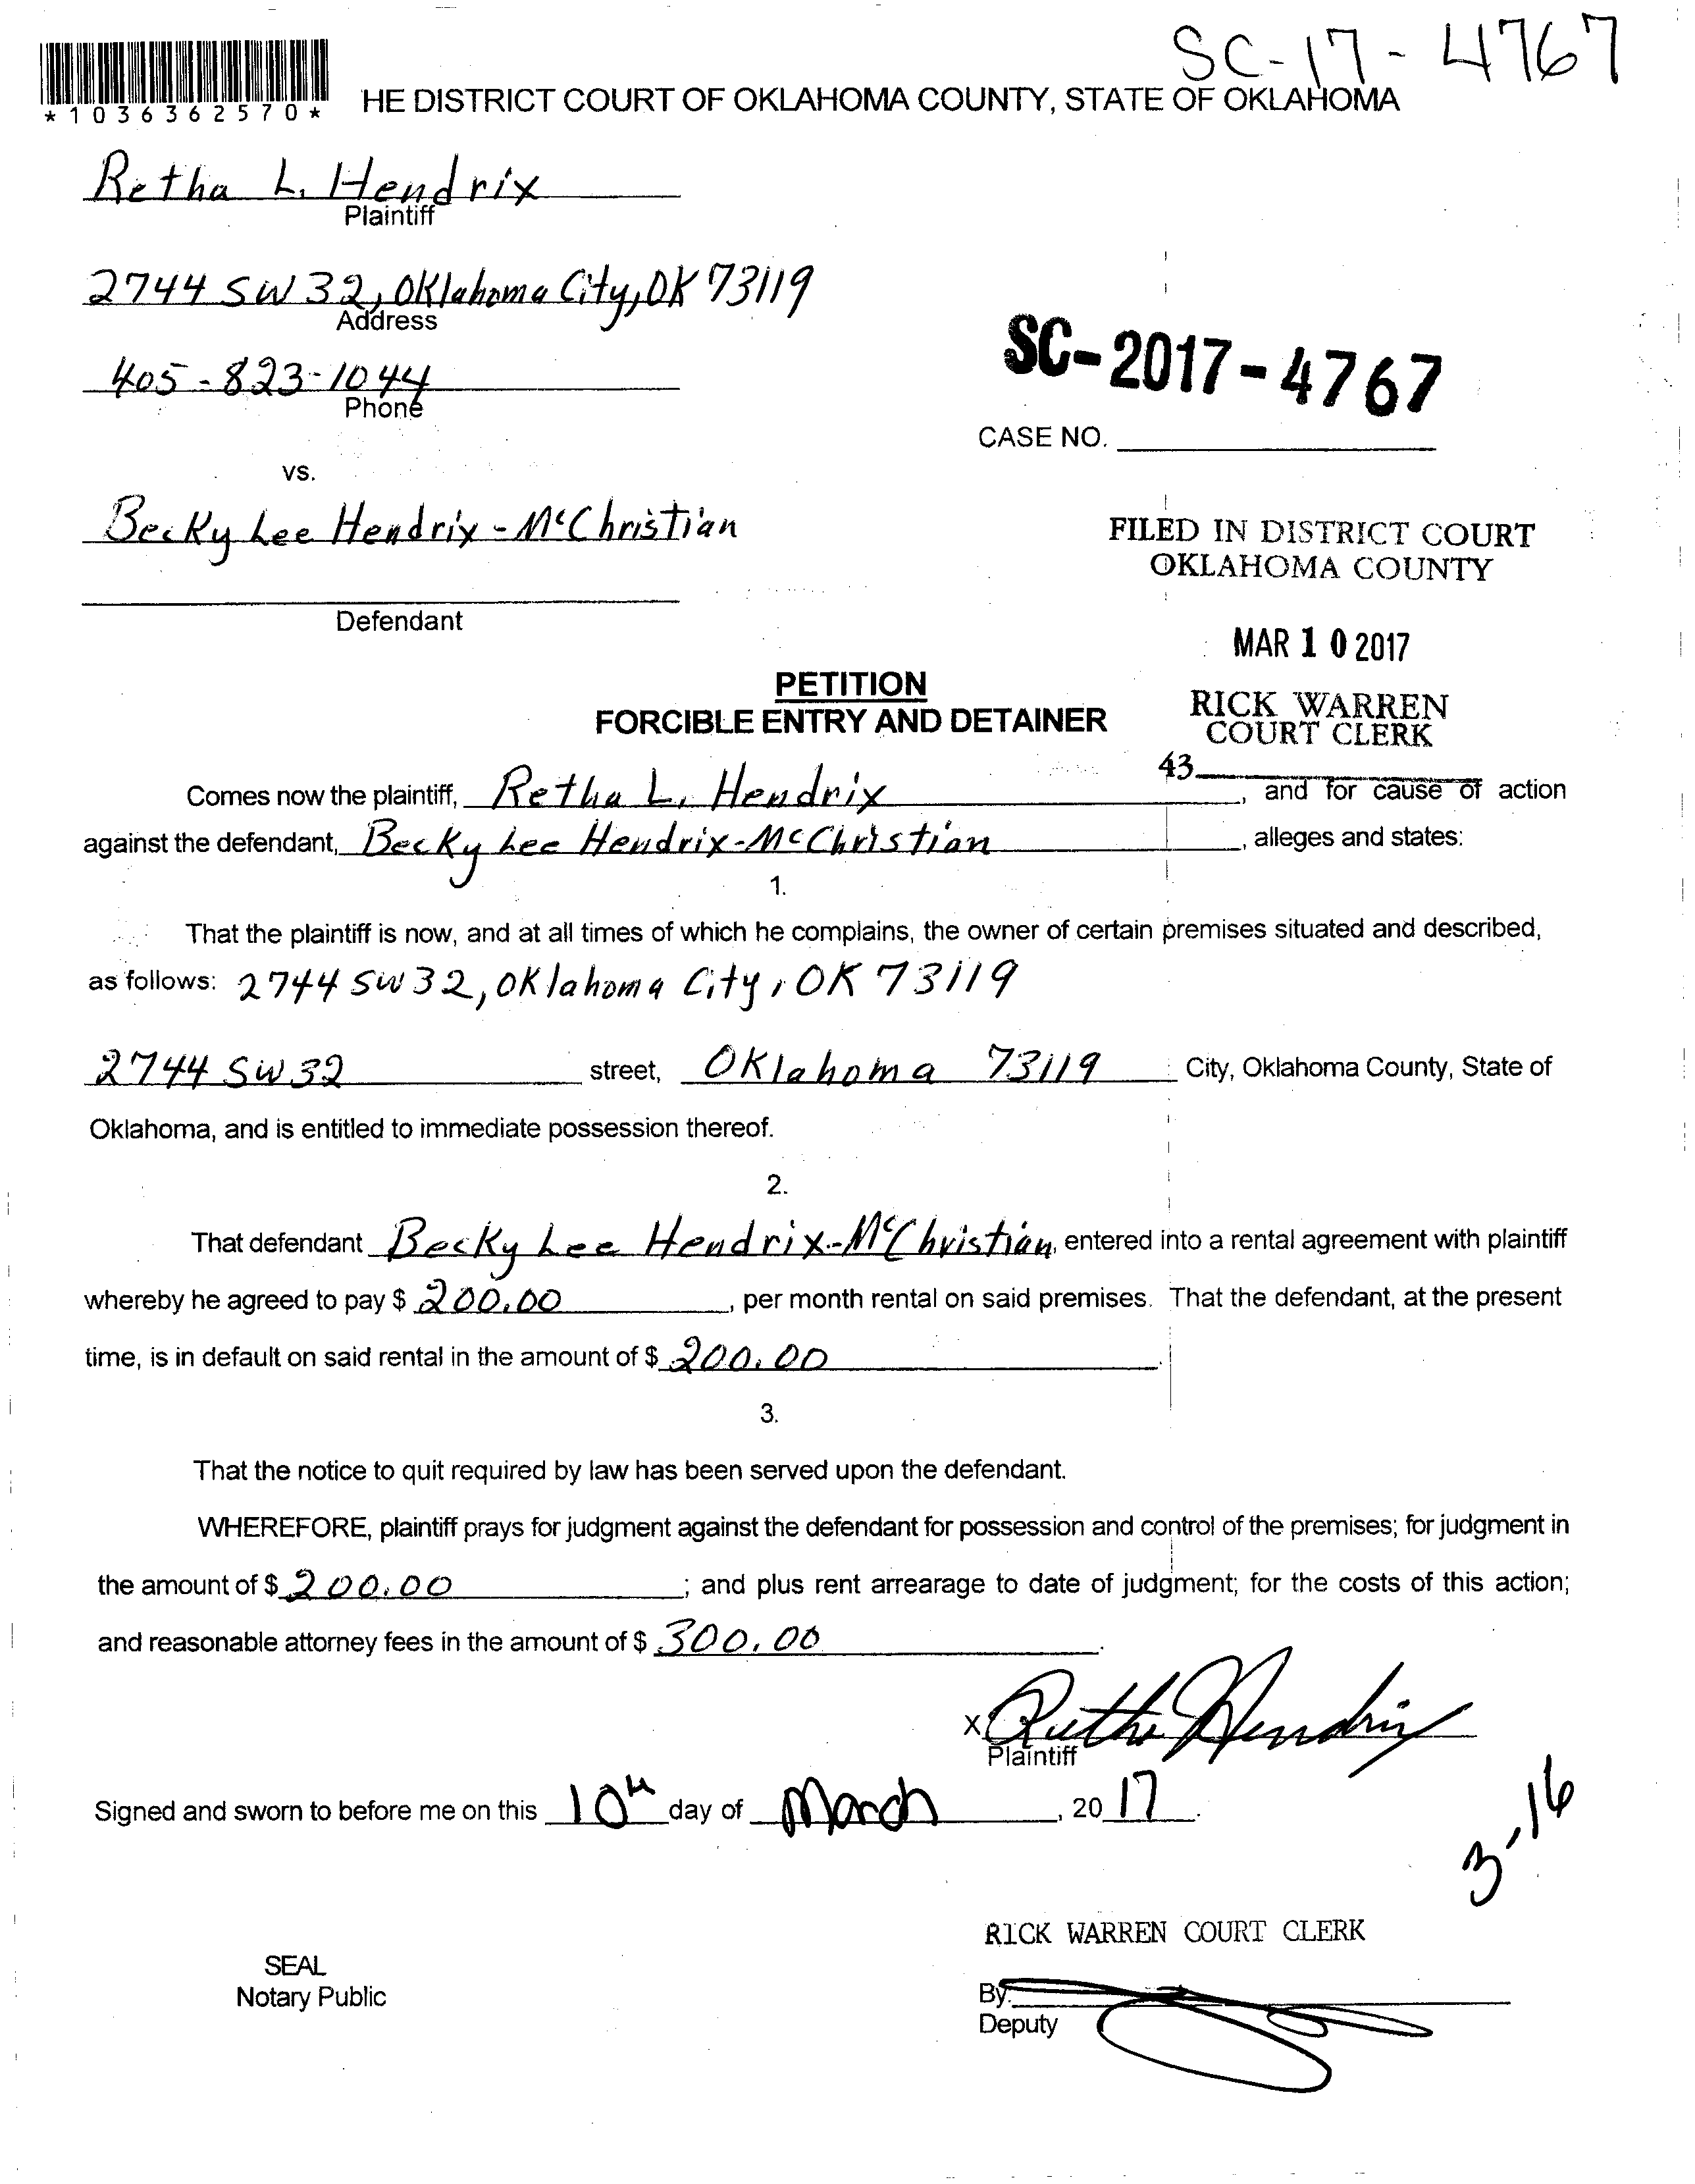 SC-17-4767
*1036362570*
HE DISTRICT COURT OF OKLAHOMA COUNTY, STATE OF OKLAHOMA
Retha L. Hendrix
Plaintiff
2744 SW 32, Oklahoma City, OK 73119
Address
405-823-1044
Phone
SC-2017-4767
CASE NO.
vs.
Becky Lee Hendrix-McChristian
Defendant
FILED IN DISTRICT COURT
OKLAHOMA COUNTY
MAR 10 2017
RICK WARREN
COURT CLERK
43
PETITION
FORCIBLE ENTRY AND DETAINER
Comes now the plaintiff, Retha L. Hendrix, and for cause of action
against the defendant, Becky Lee Hendrix-McChristian, alleges and states:
1.
That the plaintiff is now, and at all times of which he complains, the owner of certain premises situated and described,
as follows: 2744 SW 32, Oklahoma City, OK 73119
2744 SW 32 street, Oklahoma 73119 City, Oklahoma County, State of
Oklahoma, and is entitled to immediate possession thereof.
2.
That defendant Becky Lee Hendrix-McChristian, entered into a rental agreement with plaintiff
whereby he agreed to pay $ 200.00, per month rental on said premises. That the defendant, at the present
time, is in default on said rental in the amount of $ 200.00.
3.
That the notice to quit required by law has been served upon the defendant.
WHEREFORE, plaintiff prays for judgment against the defendant for possession and control of the premises; for judgment in
the amount of $ 200.00; and plus rent arrearage to date of judgment; for the costs of this action;
and reasonable attorney fees in the amount of $ 300.00.
x Retha Hendrix
Plaintiff
Signed and sworn to before me on this 10th day of March, 2017.
3-16
RICK WARREN COURT CLERK
SEAL
Notary Public
By:
Deputy